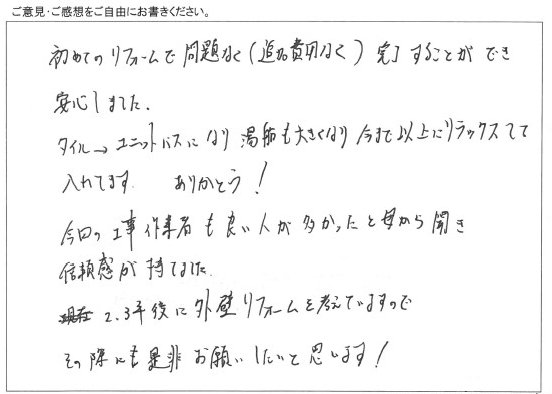 ご意見・ご感想をご自由にお書きください。
初めてのリフォームで問題なく(追加費用なく)完了することができ
安心しました。
タイル→ユニットバスになり湯船も大きくなり今まで以上にリラックスして
入れてます。 ありがとう!
今回の工事作業者も良い人が多かったと母から聞き
信頼感が持てました。
現在2.3年後に外壁リフォームを考えていますので
その際にも是非お願いしたいと思います!